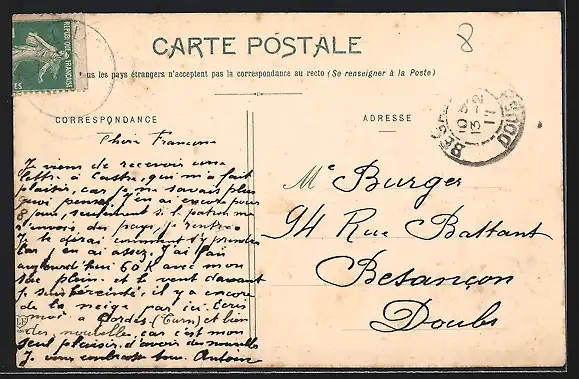 CARTE POSTALE
8
us les pays étrangers n'acceptent pas la correspondance au recto (Se renseigner à la Poste)
CORRESPONDANCE
ADRESSE
Je viens de recevoir une
lettre à Castre, qui m'a fait
plaisir, car je ne savais plus
quoi penser, j'en ai encore pour
8 jours, seulement si le patron me
du pays, je rentre
Je te dirai comment t'y prendre
Car j'en ai assez, J'ai fait
aujourd'hui 60 K avec mon
sac plein, et le vent devant
je suis éreinté, il y a encore
de la neige par ici. Ecris
moi à Cordes (Tarn) et bien
des nouvelles, car c'est mon
seul plaisir d'avoir des nouvelles
Je vous embrasse tous. Antoine
Mr Burger
94 Rue Battant
Besançon
Doubs
REPUBLIQUE FRANÇAISE
DOUBS